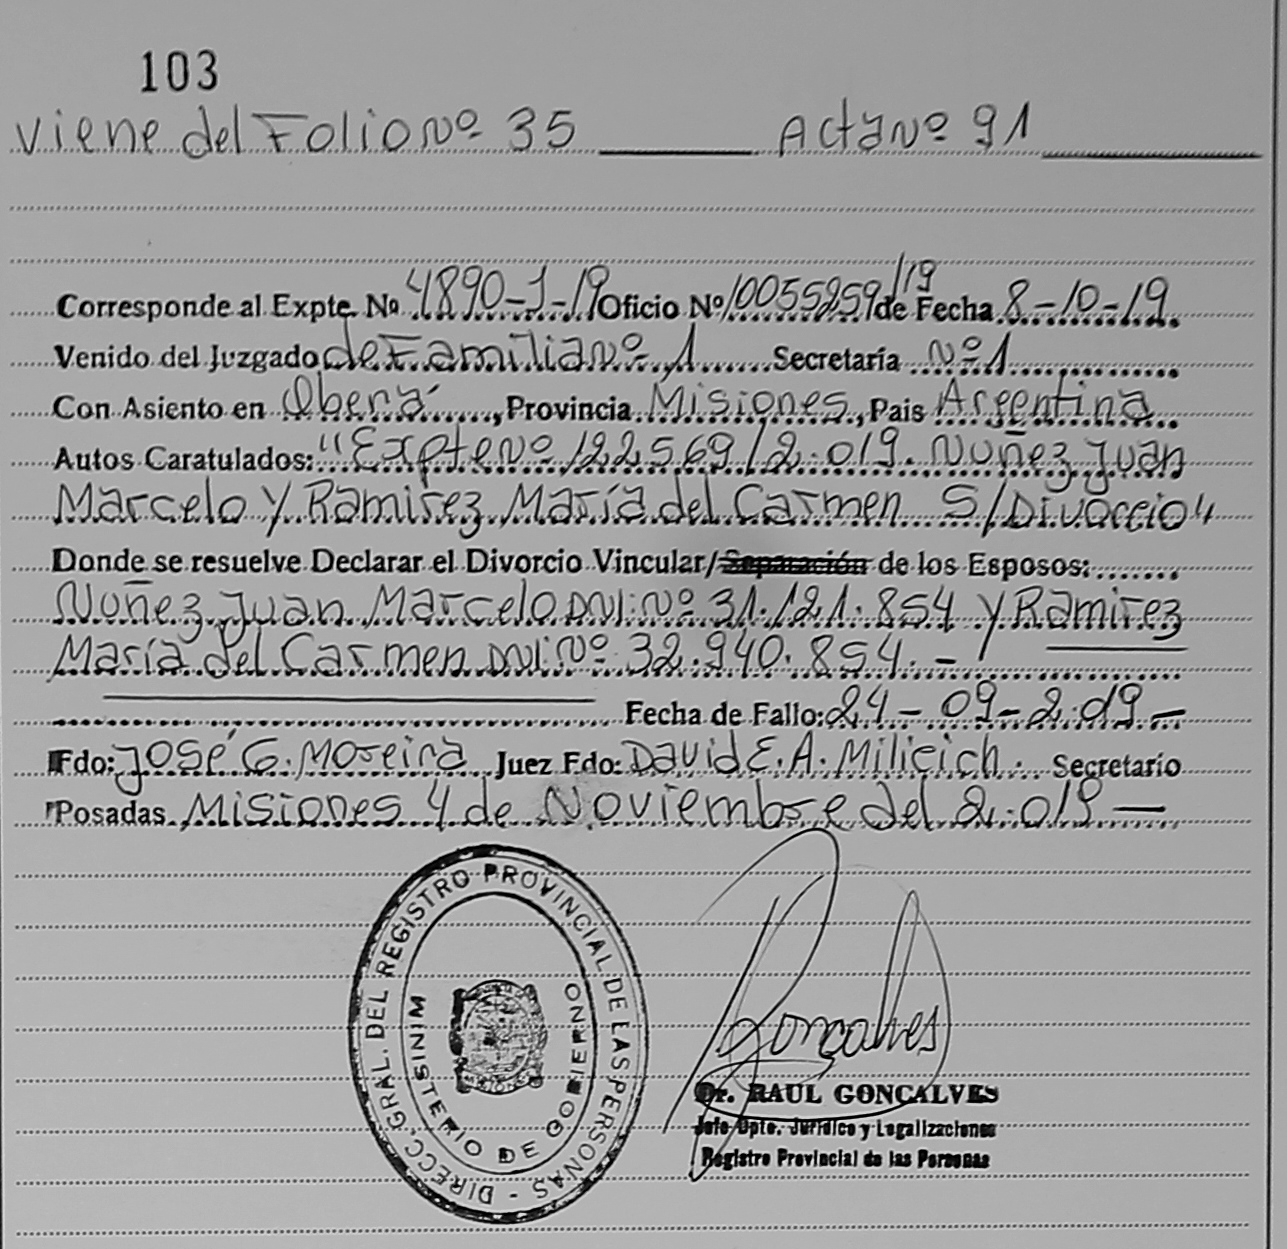 103
Viene del Folio Nº 35 Acta Nº 91
Corresponde al Expte. Nº 4890-1-19 Oficio Nº 10055259/19 de Fecha 8-10-19
Venido del Juzgado de Familia Nº 1 Secretaría Nº 1
Con Asiento en Oberá, Provincia Misiones, Pais Argentina
Autos Caratulados: "Expte Nº 122569/2.019. Nuñez Juan
Marcelo y Ramirez María del Carmen S/Divorcio"
Donde se resuelve Declarar el Divorcio Vincular/Separación de los Esposos:
Nuñez Juan Marcelo DNI:Nº 31.121.854 y Ramirez
María del Carmen DNI:Nº 32.940.854.-
Fecha de Fallo: 24-09-2.019-
Fdo: José G. Moreira Juez Fdo: David E. A. Milicich. Secretario
Posadas Misiones 4 de Noviembre del 2.019-
DIRECC. GRAL. DEL REGISTRO PROVINCIAL DE LAS PERSONAS -
MINISTERIO DE GOBIERNO
Goncalves
Dr. RAUL GONCALVES
Jefe Dpto. Jurídico y Legalizaciones
Registro Provincial de las Personas